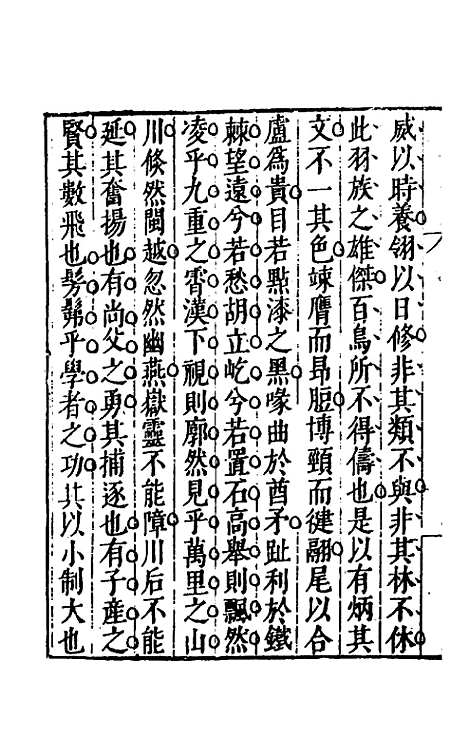 威以時養翎以日修非其類不與非其林不休
此羽族之雄傑百鳥所不得儔也是以有炳其
文不一其色竦膺而昻脰博頸而揵翮尾以合
盧為貴目若點漆之黑喙曲於酋矛趾利於鐵
棘望遠兮若愁胡立屹兮若置石高舉則飄然
凌乎九重之霄漢下視則廓然見乎萬里之山
川倐然閩越忽然幽燕嶽靈不能障川后不能
延其奮揚也有尚父之勇其捕逐也有子産之
賢其數飛也髣髴乎學者之功其以小制大也